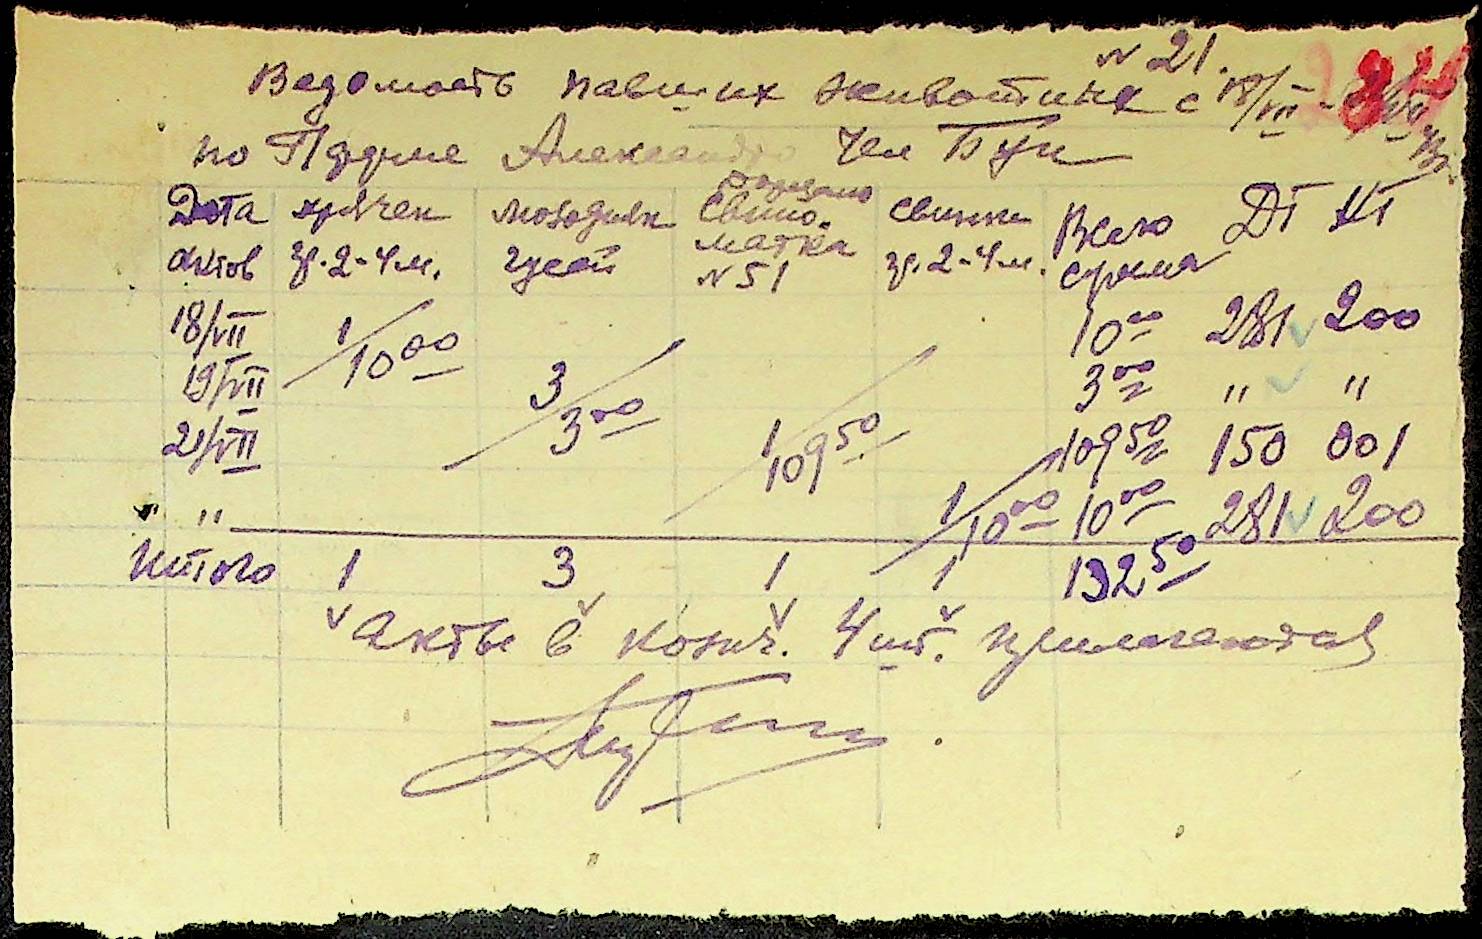 № 21.
Ведомость павших животных с 18/VII -
по Ферме Александро
Дата актов хрячек гр. 2-4 м. молодняк гусей Свиноматка № 51 свинки гр. 2-4 м. Всего сумма ДТ КТ
18/VII 1/10 00 10 00 281 200
19/VII 3/3 00 3 00 " "
21/VII 1/109 50 109 50 150 001
" " 1/10 00 10 00 281 200
Итого 1 3 1 1 132 50
Акты в колич. 4 шт. прилагаются